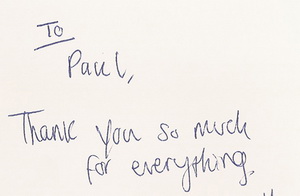 To
Paul,
Thank you so much
for everything.